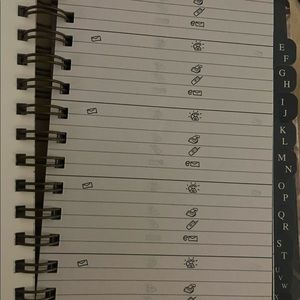 E
F
G
H
I
J
K
L
M
N
O
P
Q
R
S
T
U
V
W
X